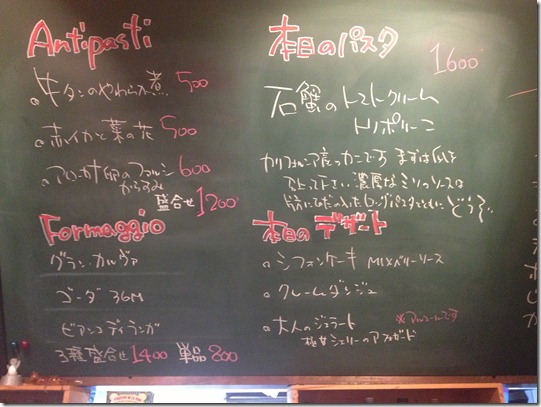 Antipasti
牛タンのやわらか煮 500
赤イカと菜の花 500
600
盛合せ 1200
Formaggio
グラン・カルヴァ
ゴーダ 36M
ビアンコ ディ ランガ
3種盛合せ 1400 単品 800
本日のパスタ 1600
石蟹のトマトクリーム
トリポリーニ
カリフォルニア産のカニです まずは
下さい 濃厚なミソのソースは
ロングパスタ どうぞ
本日のデザート
シフォンケーキ MIXベリーソース
クレームダンジュ
大人のジェラート ※アルコールです
極甘シェリーのアフォガード